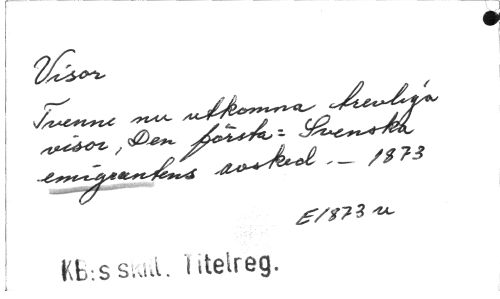 Visor
Tvenne nu utkomna trevliga
visor, Den första = Svenska
emigrantens avsked. — 1873
E1873 u
KB:s skill. Titelreg.